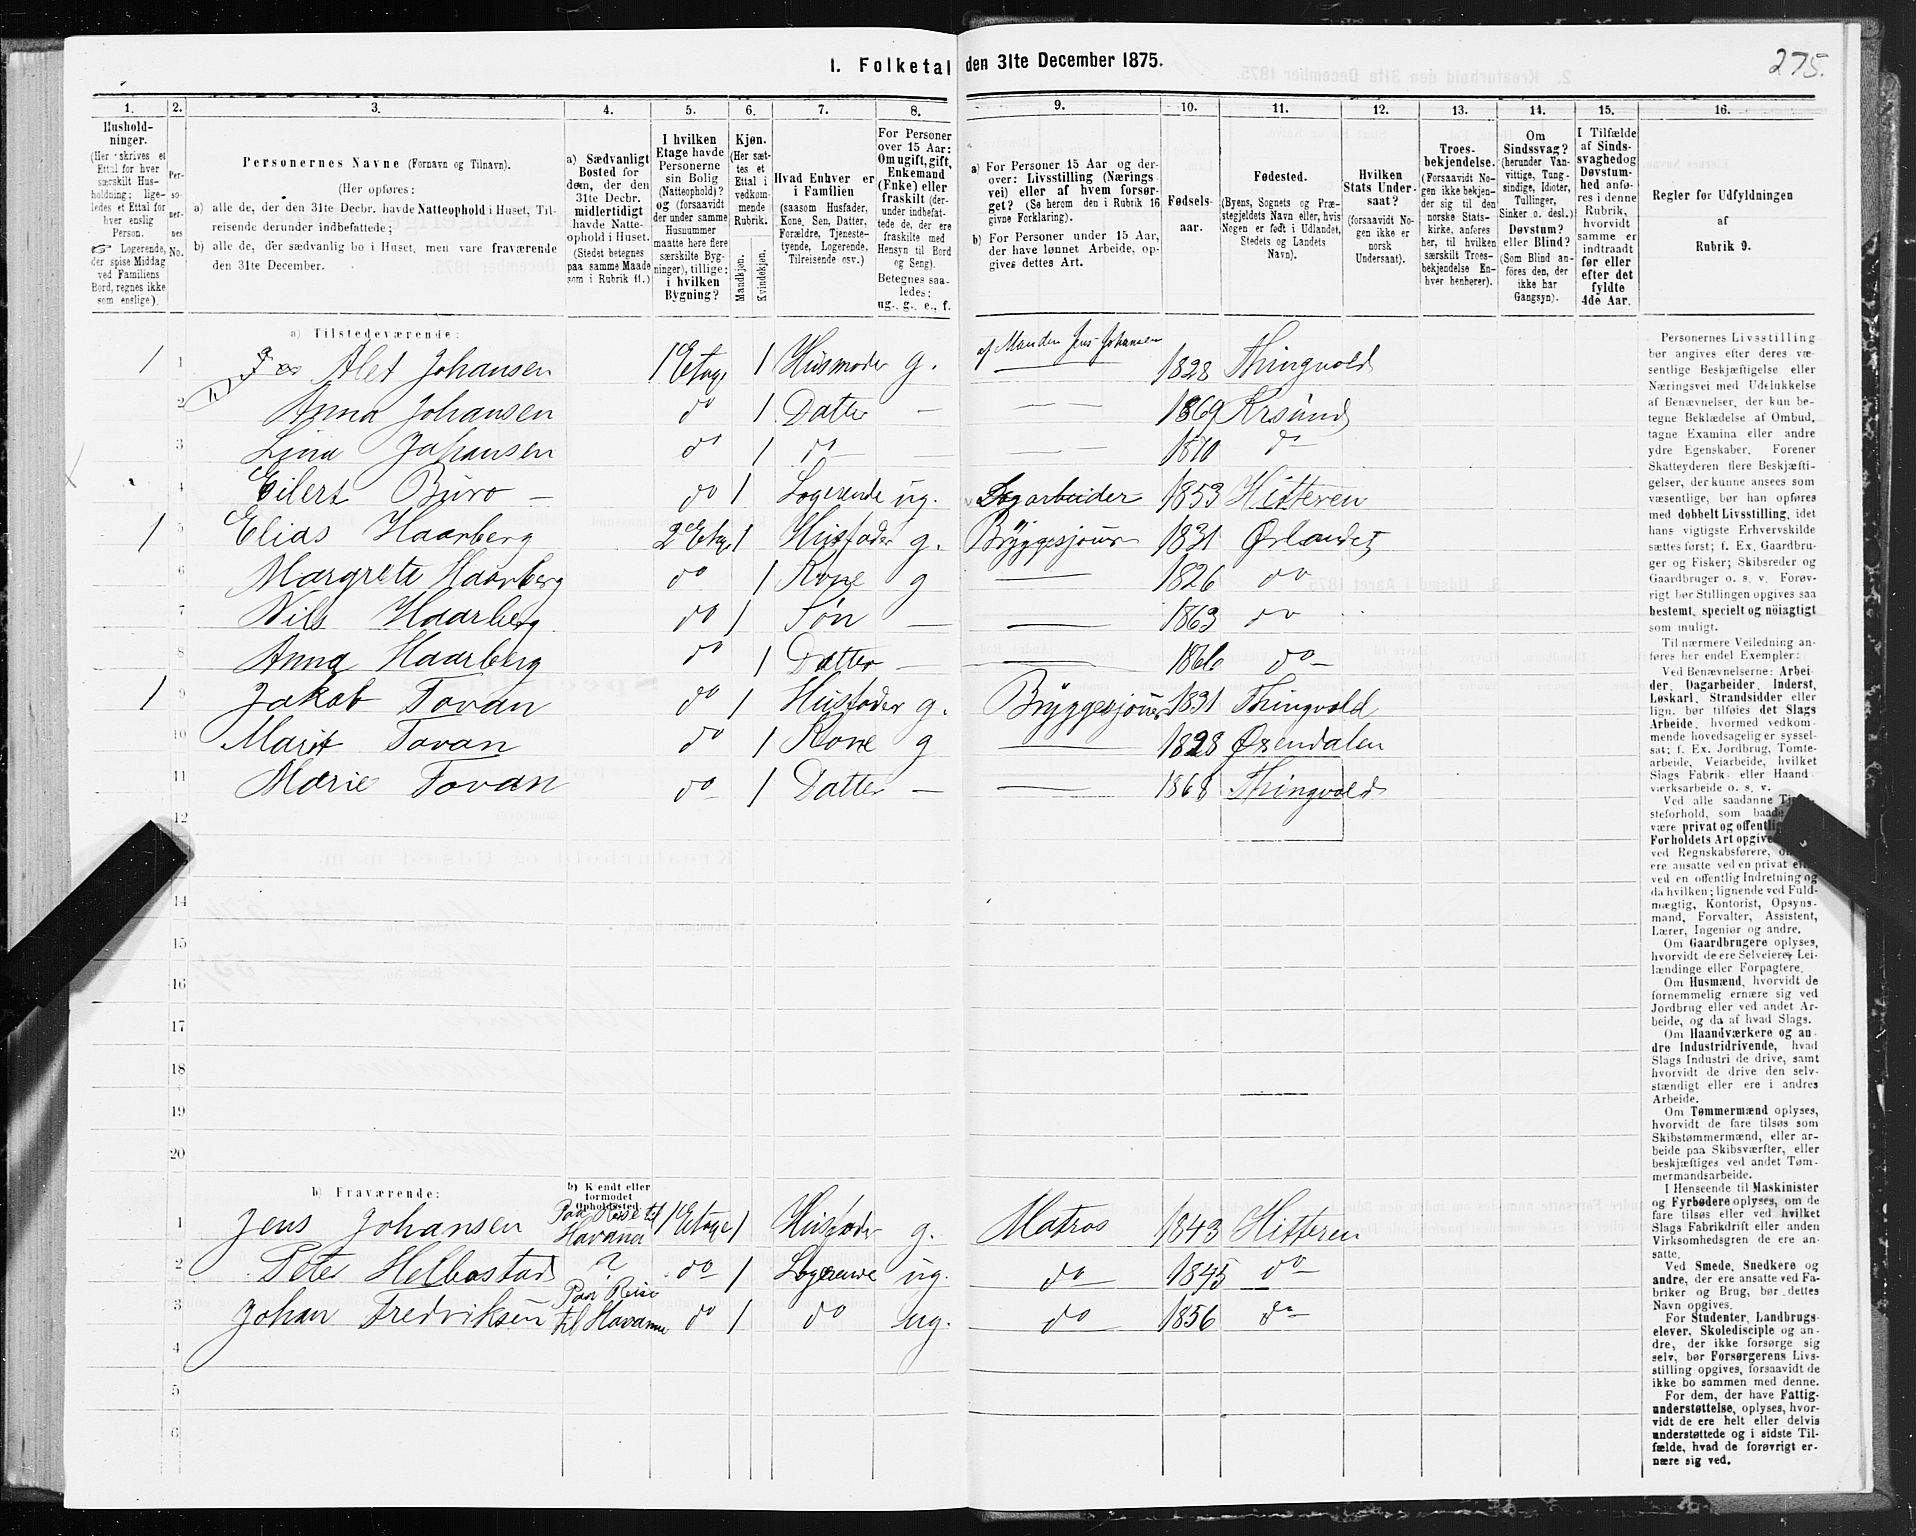 275.
I. Folketal den 31te December 1875.
1. 2. 3. 4. 5. 6. 7. 8. 9. 10. 11. 12. 13. 14. 15. 16.
Hushold-
ninger.
(Her skrives et
Ettal for hver
særskilt Hus-
holdning; lige-
ledes et Ettal for
hver enslig
Person.
☞ Logerende,
der spise Middag
ved Familiens
Bord, regnes ikke
som enslige).
Per-
so-
ner-
nes
No.
Personernes Navne (Fornavn og Tilnavn).
(Her opføres:
a) alle de, der den 31te Decbr. havde Natteophold i Huset, Til-
reisende derunder indbefattede;
b) alle de, der sædvanlig bo i Huset, men vare fraværende
den 31te December.
a) Sædvanligt
Bosted for
dem, der den
31te Decbr.
midlertidigt
havde Natte-
ophold i Huset.
(Stedet betegnes
paa samme Maade
som i Rubrik 11.)
I hvilken
Etage havde
Personerne
sin Bolig
(Natteophold)?
og (forsaavidt
der under samme
Husnummer
maatte høre flere
særskilte Byg-
ninger), tillige:
i hvilken
Bygning?
Kjøn.
(Her sæt-
tes et
Ettal i
vedkom-
mende
Rubrik.
Mandkjøn.
Kvindekjøn.
Hvad Enhver er
i Familien
(saasom Husfader,
Kone, Søn, Datter,
Forældre, Tjeneste-
tyende, Logerende,
Tilreisende osv.)
For Personer
over 15 Aar:
Om ugift, gift,
Enkemand
(Enke) eller
fraskilt (der-
under indbefat-
tede de, der ere
fraskilte med
Hensyn til Bord
og Seng).
Betegnes saa-
ledes:
ug., g., e., f.
a) For Personer 15 Aar og der-
over: Livsstilling (Nærings-
vei) eller af hvem forsør-
get? (Se herom den i Rubrik 16
givne Forklaring).
b) For Personer under 15 Aar,
der have lønnet Arbeide, op-
gives dettes Art.
Fødsels-
aar.
Fødested.
(Byens, Sognets og Præ-
stegjeldets Navn eller, hvis
Nogen er født i Udlandet,
Stedets og Landets
Navn).
Hvilken
Stats Under-
saat?
(forsaavidt No-
gen ikke er
norsk
Undersaat).
Troes-
bekjendelse.
(Forsaavidt No-
gen ikke bekjen-
der sig til den
norske Stats-
kirke, anføres
her, til hvilken
særskilt Troes-
bekjendelse En-
hver henhører).
Om
Sindssvag?
(herunder Van-
vittige, Tung-
sindige, Idioter,
Tullinger,
Sinker o. desl.)
Døvstum?
eller Blind?
(Som Blind an-
føres den, der
ikke har
Gangsyn).
I Tilfælde
af Sinds-
svaghed og
Døvstum-
hed anfø-
res i denne
Rubrik,
hvorvidt
samme er
indtraadt
før eller
efter det
fyldte
4de Aar.
Regler for Udfyldningen
af
Rubrik 9.
a) Tilstedeværende:
1 1 Alet Johansen 1 Etage 1 Husmoder g. af Manden Jens Johansen 1828 Thingvold
2 Anna Johansen do 1 Datter — — — 1869 Krsund
3 Lina Johansen do 1 do — — — 1870 do
4 Eilert Buvo — do 1 Logerende ug. Dagarbeider 1853 Hitteren
1 5 Elias Haarberg 2 Etage 1 Husfader g. Bryggesjouer 1831 Ørlandet
6 Margrete Haarberg do 1 Kone g — 1826 do
7 Nils Haarberg do 1 Søn — — 1863 do
8 Anna Haarberg do 1 Datter — — 1866 do —
1 9 Jakob Tovan do 1 Husfader g. Bryggesjouer 1831 Thingvold
10 Marit Tovan do 1 Kone g — 1828 Øxendalen
11 Marie Tovan do 1 Datter — — 1868 Thingvold
12
14
15
16
17
18
19
20
b) Fraværende: b) Kjendt eller
formodet
Opholdssted.
1 Jens Johansen Paa Reise til Havana 1 Etage 1 Husfader g. Matros 1843 Hitteren
2 Peter Helbostad ? do 1 Logerende ug. do 1845 do
3 Johan Fredriksen Paa Reise til Havanna do 1 do ug. do 1856 do
4
5
6
Personernes Livsstilling
bør angives efter deres væ-
sentlige Beskjæftigelse eller
Næringsvei med Udelukkelse
af Benævnelser, der kun be-
tegne Beklædelse af Ombud,
tagne Examina eller andre
ydre Egenskaber. Forener
Skatteyderen flere Beskjæfti-
gelser, der kunne ansees som
væsentlige, bør han opføres
med dobbelt Livsstilling, idet
hans vigtigste Erhvervskilde
sættes først; f. Ex. Gaardbru-
ger og Fisker; Skibsreder og
Gaardbruger o. s. v. Forøv-
rigt bør Stillingen opgives saa
bestemt, specielt og nöiagtigt
som muligt.
Til nærmere Veiledning an-
føres her endel Exempler:
Ved Benævnelserne: Arbei-
der, Dagarbeider, Inderst,
Løskarl, Strandsidder eller
lign. bør tilføies det Slags
Arbeide, hvormed vedkom-
mende hovedsagelig er syssel-
sat; f. Ex. Jordbrug, Tomte-
arbeide, Veiarbeide, hvilket
Slags Fabrik- eller Haand-
værksarbeide o. s. v.
Ved alle saadanne
steforhold, som baade
være privat og offentlig
Forholdets Art opgives
ved Regnskabsførere,
ere ansatte ved en privat
ved en offentlig Indretning og
da hvilken; lignende ved Fuld-
mægtig, Kontorist, Opsyns-
mand, Forvalter, Assistent,
Lærer, Ingeniør og andre.
Om Gaardbrugere oplyses,
hvorvidt de ere Selveiere, Lei-
lændinge eller Forpagtere.
Om Husmænd, hvorvidt de
fornemmelig ernære sig ved
Jordbrug eller ved andet Ar-
beide, og da af hvad Slags.
Om Haandværkere og an-
dre Industridrivende, hvad
Slags Industri de drive, samt
hvorvidt de drive den selv-
stændigt eller ere i andres
Arbeide.
Om Tømmermænd oplyses,
hvorvidt de fare tilsøs som
Skibstømmermænd, eller ar-
beide paa Skibsværfter, eller
beskjæftiges ved andet Tøm-
mermandsarbeide.
I Henseende til Maskinister
og Fyrbødere oplyses, om de
fare tilsøs eller ved hvilket
Slags Fabrikdrift eller anden
Virksomhedsgren de ere an-
satte.
Ved Smede, Snedkere og
andre, der ere ansatte ved Fa-
briker og Brug, bør dettes
Navn opgives.
For Studenter, Landbrugs-
elever, Skoledisciple og an-
dre, der ikke forsørge sig
selv, bør Forsørgerens Livs-
stilling opgives, forsaavidt de
ikke bo sammen med denne.
For dem, der have Fattig-
understøttelse, oplyses, hvor-
vidt de ere helt eller delvis
understøttede og i sidste Til-
fælde, hvad de forøvrigt er-
nære sig ved.